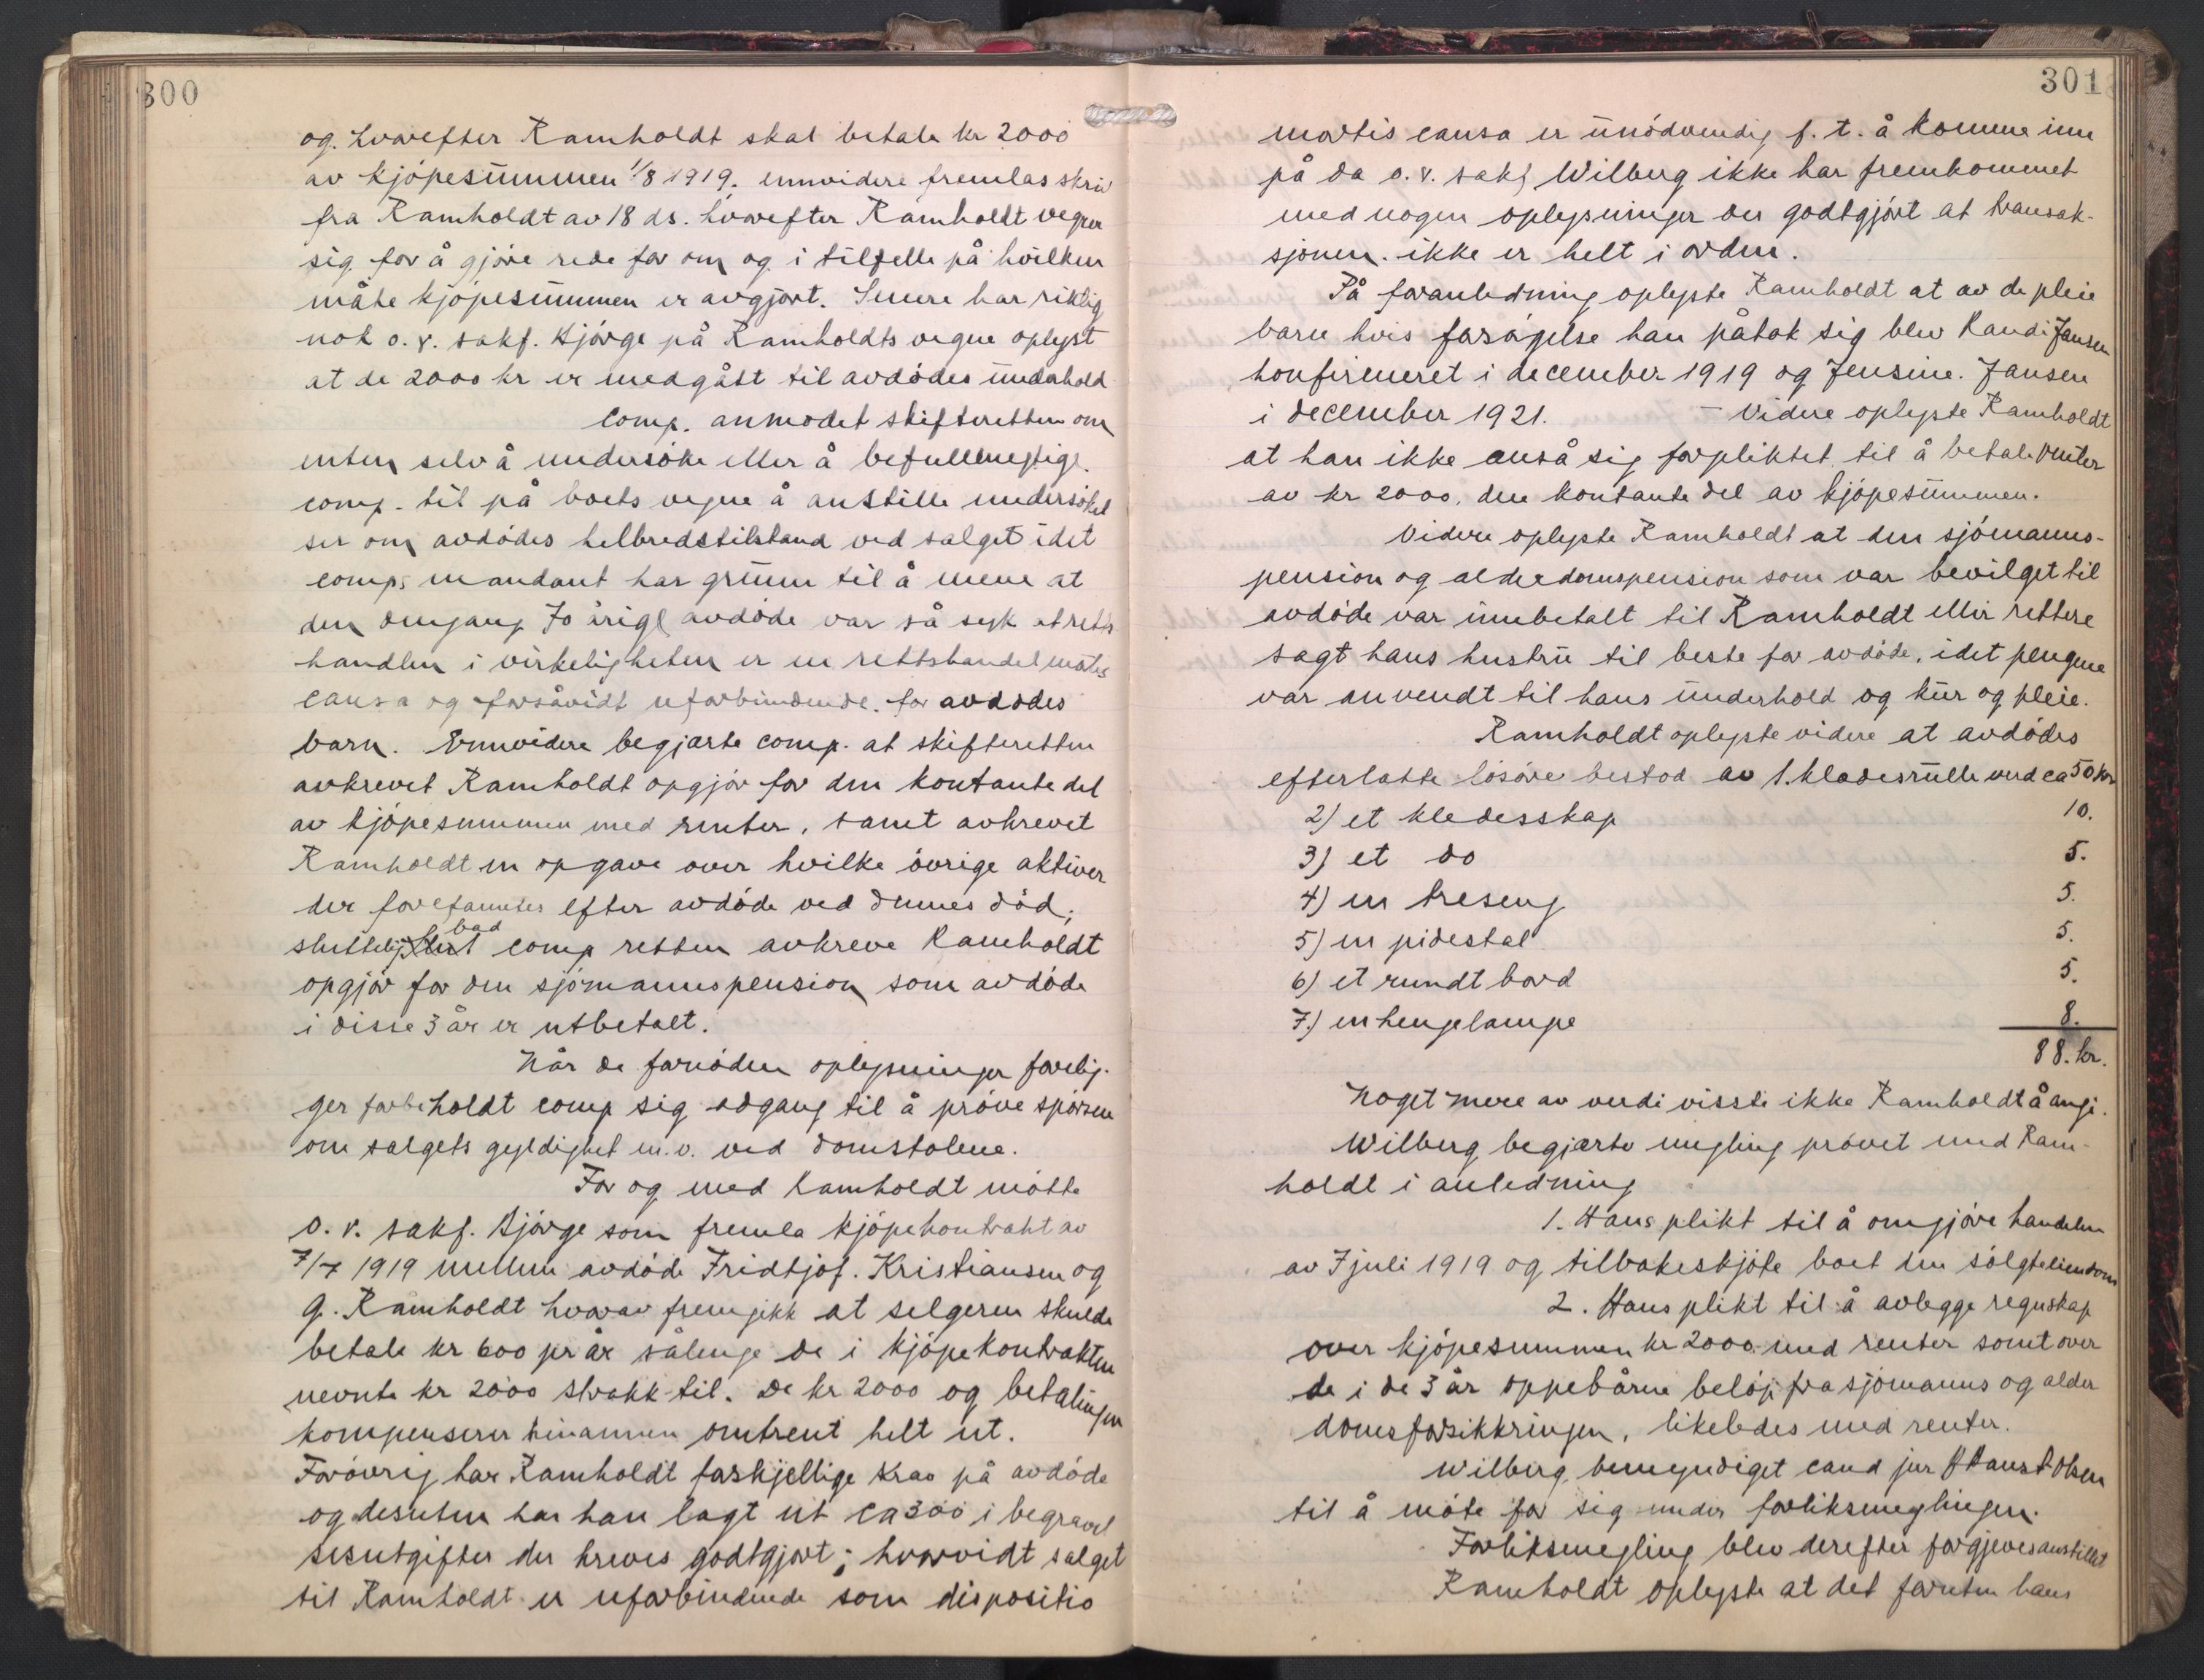 300
og. hvorefter Ramholdt skal betale kr 2000
av kjöpesummen 1/8 1919. ennvidere fremlas skriv
fra Ramholdt av 18 ds. hvorefter Ramholdt vegrer
sig for å gjöre rede for om og i tilfelle på hvilken
måte kjöpesummen er avgjort. Senere har riktig
nok o. r. sakf. Bjórge på Ramholdts vegne oplyst
at de 2000 kr er medgått til avdódes underhold
Comp. anmodet skifteretten om
enten selv å undersöke eller å befullmegtige
comp. til på boets vegne å anstille undersökel
ser om avdódes helbredstilstand ved salget idet
comps mandant har grunn til å mene at
den dengang 70 årige avdöde var så syk at retts
handlen i virkeligheten er en rettshandel mortis
causa og forsåvidt uforbindende for avdódes
barn. Ennvidere begjærte comp. at skifteretten
avkrevet Ramholdt opgjör for den kontante del
av kjöpesummen med renter, samt avkrevet
Ramholdt en opgave over hvilke övrige aktiver
der forefantes efter avdöde ved dennes död;
sluttelig bad comp retten avkreve Ramholdt
opgjör for den sjömannspension som avdöde
i disse 3 år er utbetalt.
Når de fornödne oplysninger forelig-
ger forbeholdt comp sig adgang til å pröve spörsm
om salgets gyldighet m.v. ved domstolene.
For og med Ramholdt mótte
o. r. sakf. Bjórge som fremla kjöpekontrakt av
7/7 1919 mellem avdöde Fridtjof. Kristiansen og
G. Ramholdt hvorav fremgikk at selgeren skulde
betale kr 600 pr år sålenge de i kjöpekontrakten
nevnte kr 2000 strakk til. De kr 2000 og betalingen
kompenserer hinannen omtrent helt ut.
Forövrig har Ramholdt forskjellige krav på avdöde
og desuten har han lagt ut ca 300 i begravel
sesutgifter der kreves godtgjort; hvorvidt salget
til Ramholdt er uforbindende som dispositio
301
mortis causa er unödvendig f. t. å komme inn
på da o. r. sakf Wilberg ikke har fremkommet
med nogen oplysninger der godtgjör at transak-
sjonen. ikke er helt i orden.
På foranledning oplyste Ramholdt at av de pleie
barn hvis forsörgelse han påtok sig blev Randi Jansen
konfirmeret i december 1919 og Jensine. Jansen
i december 1921. – Videre oplyste Ramholdt
at han ikke anså sig forpliktet til å betale renter
av kr 2000. den kontante del av kjöpesummen.
Videre oplyste Ramholdt at den sjömanns-
pension og alderdomspension som var bevilget til
avdöde var innbetalt til Ramholdt eller rettere
sagt hans hustru til beste for avdöde, idet pengene
var anvendt til hans underhold og kur og pleie.
Ramholdt oplyste videre at avdödes
efterlatte lösöre bestod av 1. kladesrulle verd ca 50 kr
2) et kledesskap 10.
3) et do 5.
4) en treseng 5.
5) en pidestal 5.
6) et rundt bord 5.
7.) en hengelampe 8.
88. kr.
Noget mere av verdi visste ikke Ramholdt å angi.
Wilberg begjærte megling prövet med Ram-
holdt i anledning
1. Hans plikt til å omgjöre handelen
av 7 juli 1919 og tilbakeskjöte boet den solgte eiendom
2. Hans plikt til å avlegge regnskap
over kjöpesummen kr 2000 med renter samt over
de i de 3 år oppebårne belöp fra sjömanns og alder
domsforsikkringen, likeledes med renter.
Wilberg bemyndiget cand jur Hans Olsen
til å móte for sig under forliksmeglingen.
Forliksmegling blev derefter forgjeves anstillet
Ramholdt oplyste at det foruten hans